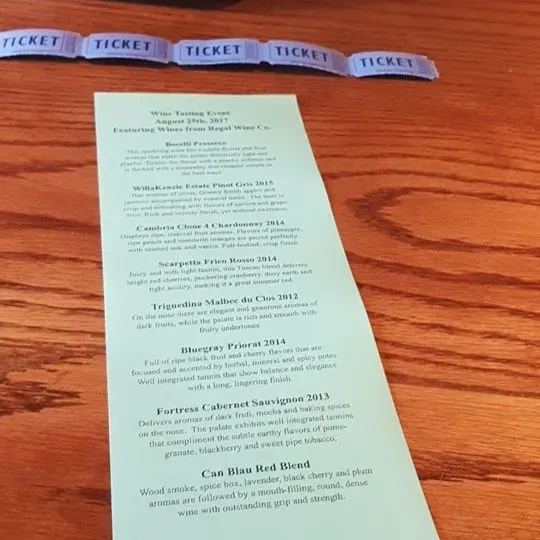 TICKET TICKET TICKET TICKET TICKET
Wine Tasting Event
August 25th, 2017
Featuring Wines from Regal Wine Co.
Bocelli Prosecco
This sparkling wine has a subtle flower and fruit
aroma that make the palate deliciously light and
playful. Tickles the throat with a peachy softness and
is flecked with a minerality that remains supple in
the best ways
WillaKenzie Estate Pinot Gris 2015
Has aromas of citrus, Granny Smith apples and
jasmine accompanied by mineral tones. The taste is
crisp and refreshing with flavors of apricot and grape-
fruit. Rich and velvety finish, yet without sweetness.
Cambria Clone 4 Chardonnay 2014
Displays ripe, tropical fruit aromas. Flavors of pineapple,
ripe peach and mandarin oranges are paired perfectly
with toasted oak and vanilla. Full-bodied, crisp finish
Scarpetta Frico Rosso 2014
Juicy and with light tannin, this Tuscan blend delivers
bright red cherries, puckering cranberry, dusty earth and
light acidity, making it a great summer red.
Triguedina Malbec du Clos 2012
On the nose there are elegant and generous aromas of
dark fruits, while the palate is rich and smooth with
fruity undertones.
Bluegray Priorat 2014
Full of ripe black fruit and cherry flavors that are
focused and accented by herbal, mineral and spicy notes.
Well integrated tannin that show balance and elegance
with a long, lingering finish.
Fortress Cabernet Sauvignon 2013
Delivers aromas of dark fruit, mocha and baking spices
on the nose. The palate exhibits well integrated tannins
that compliment the subtle earthy flavors of pome-
granate, blackberry and sweet pipe tobacco.
Can Blau Red Blend
Wood smoke, spice box, lavender, black cherry and plum
aromas are followed by a mouth-filling, round, dense
wine with outstanding grip and strength.